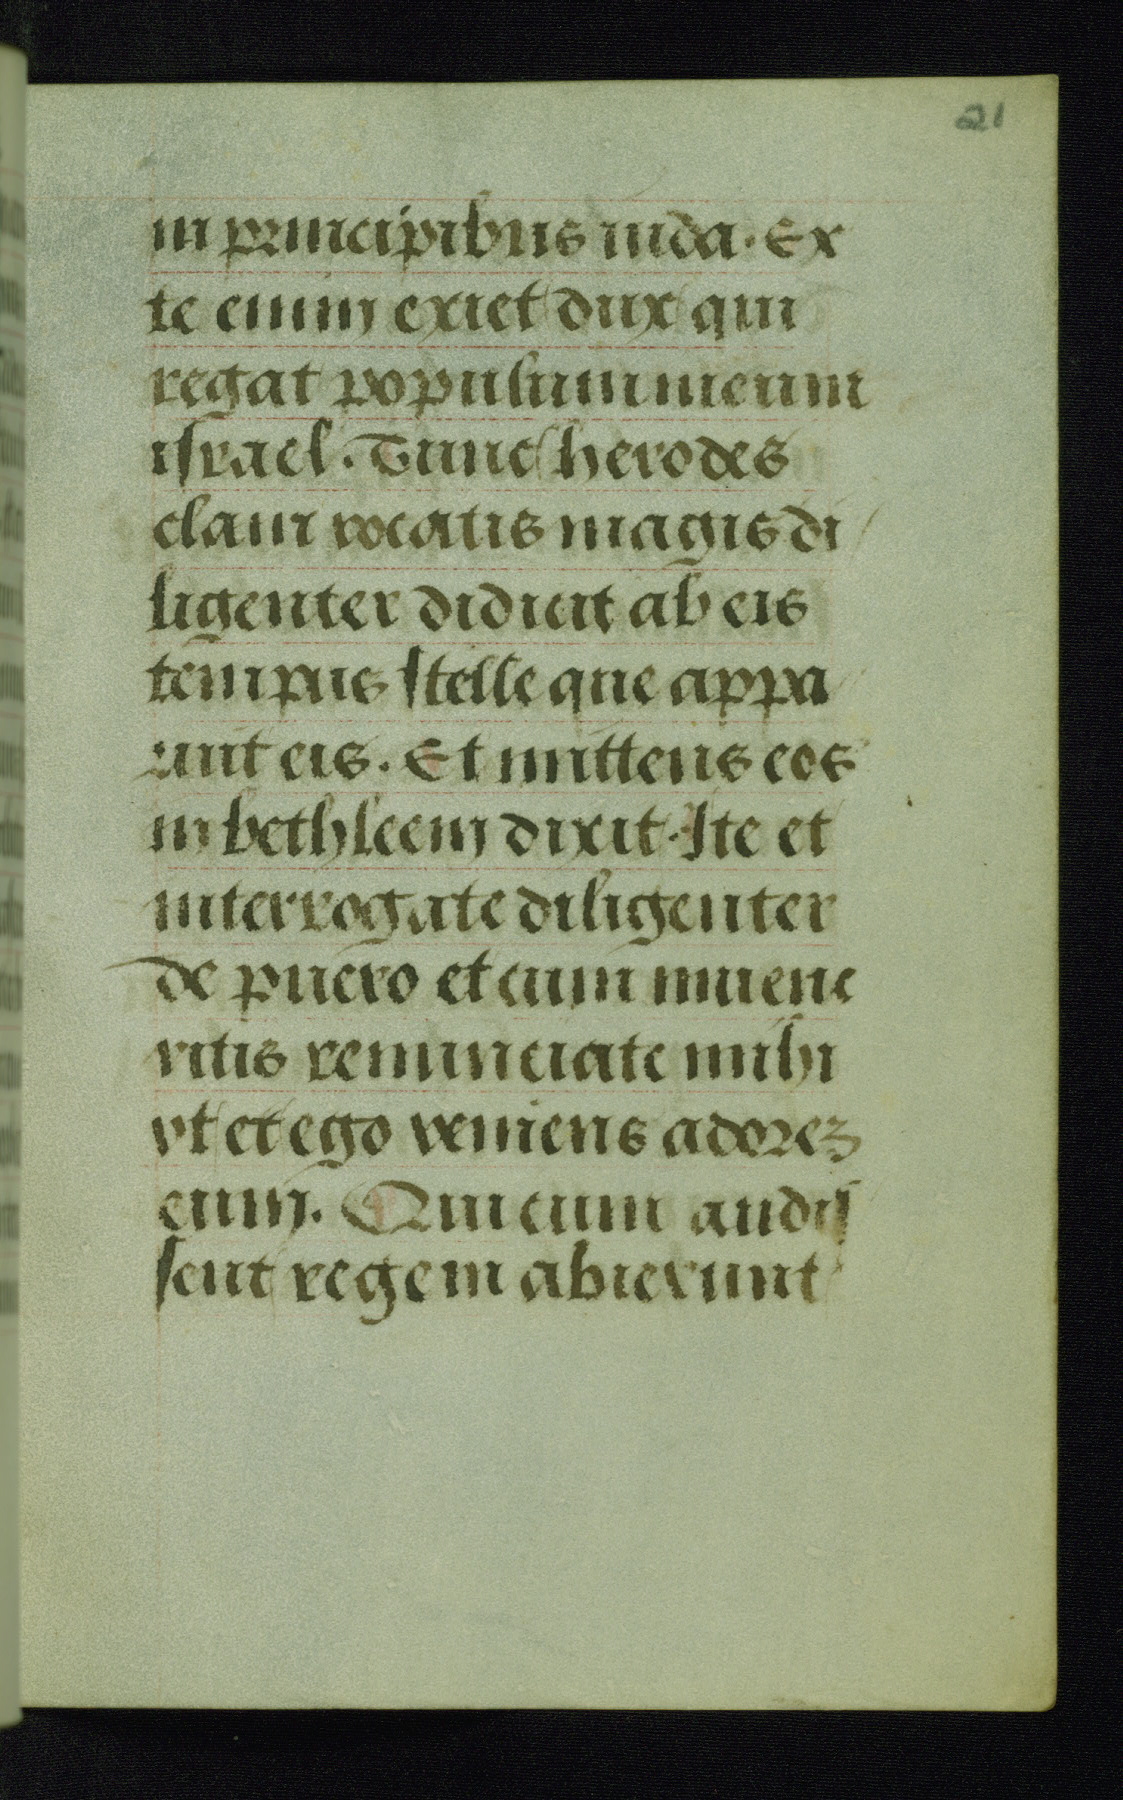 21
in principibus iuda. Ex
te enim exiet dux qui
regat populum meum
israel. Tunc herodes
clam vocatis magis di
ligenter didicit ab eis
tempus stelle que appa
ruit eis. Et mittens eos
in bethleem dixit. Ite et
interrogate diligenter
de puero et cum inuene
ritis renunciate mihi
vt et ego veniens adorez
eum. Qui cum audis
sent regem abierunt